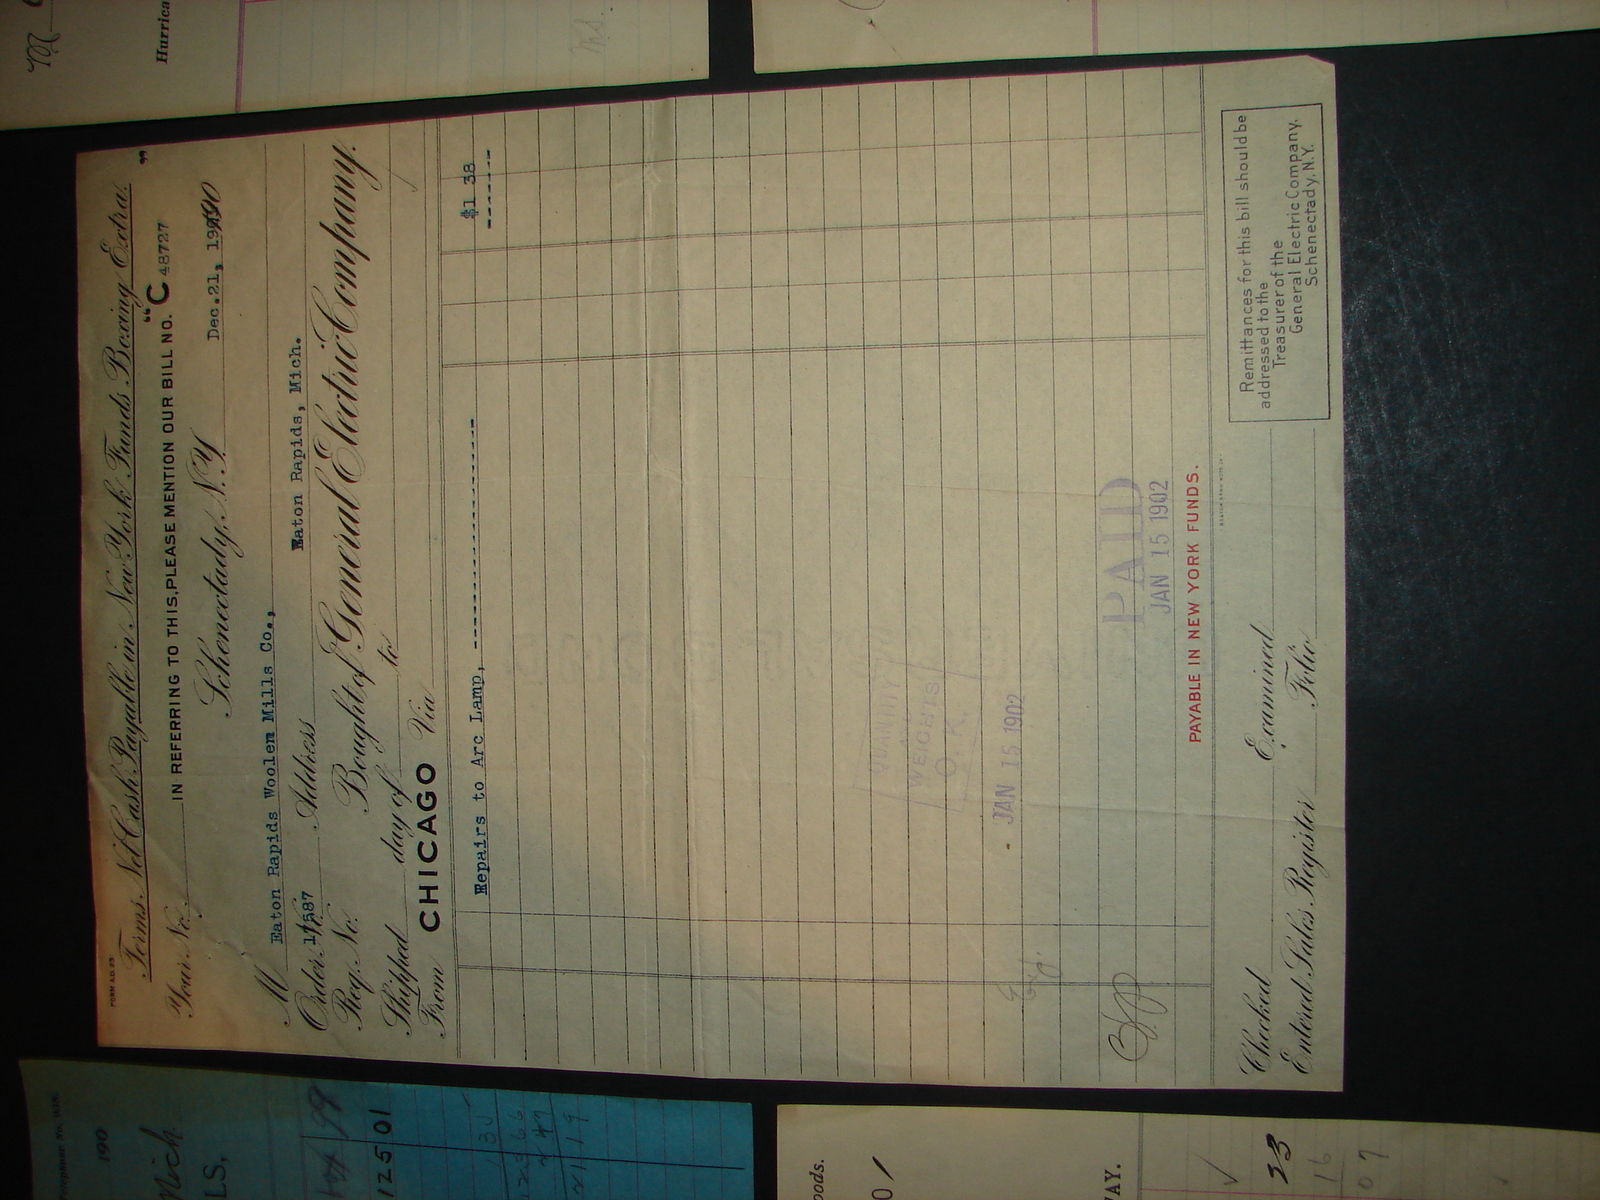 FORM A.D. 23
Terms, Net Cash Payable in New York Funds. Boxing Extra.
Your No.
IN REFERRING TO THIS, PLEASE MENTION OUR BILL NO. "C" 48727
Schenectady, N.Y. Dec.21, 19
M Eaton Rapids Woolen Mills Co.,
Order No. Address Eaton Rapids, Mich.
Req. No. Bought of General Electric Company.
Shipped day of to
From CHICAGO Via
Repairs to Arc Lamp, $1 38
QUANTITY
WEIGHTS
O. K.
- JAN 15 1902
PAID
JAN 15 1902
PAYABLE IN NEW YORK FUNDS.
Checked Examined
Entered Sales Register Folio
Remittances for this bill should be
addressed to the
Treasurer of the
General Electric Company,
Schenectady, N.Y.
Hurrica
190
Mich.
LS,
125 01
oods.
WAY.
23
16
07